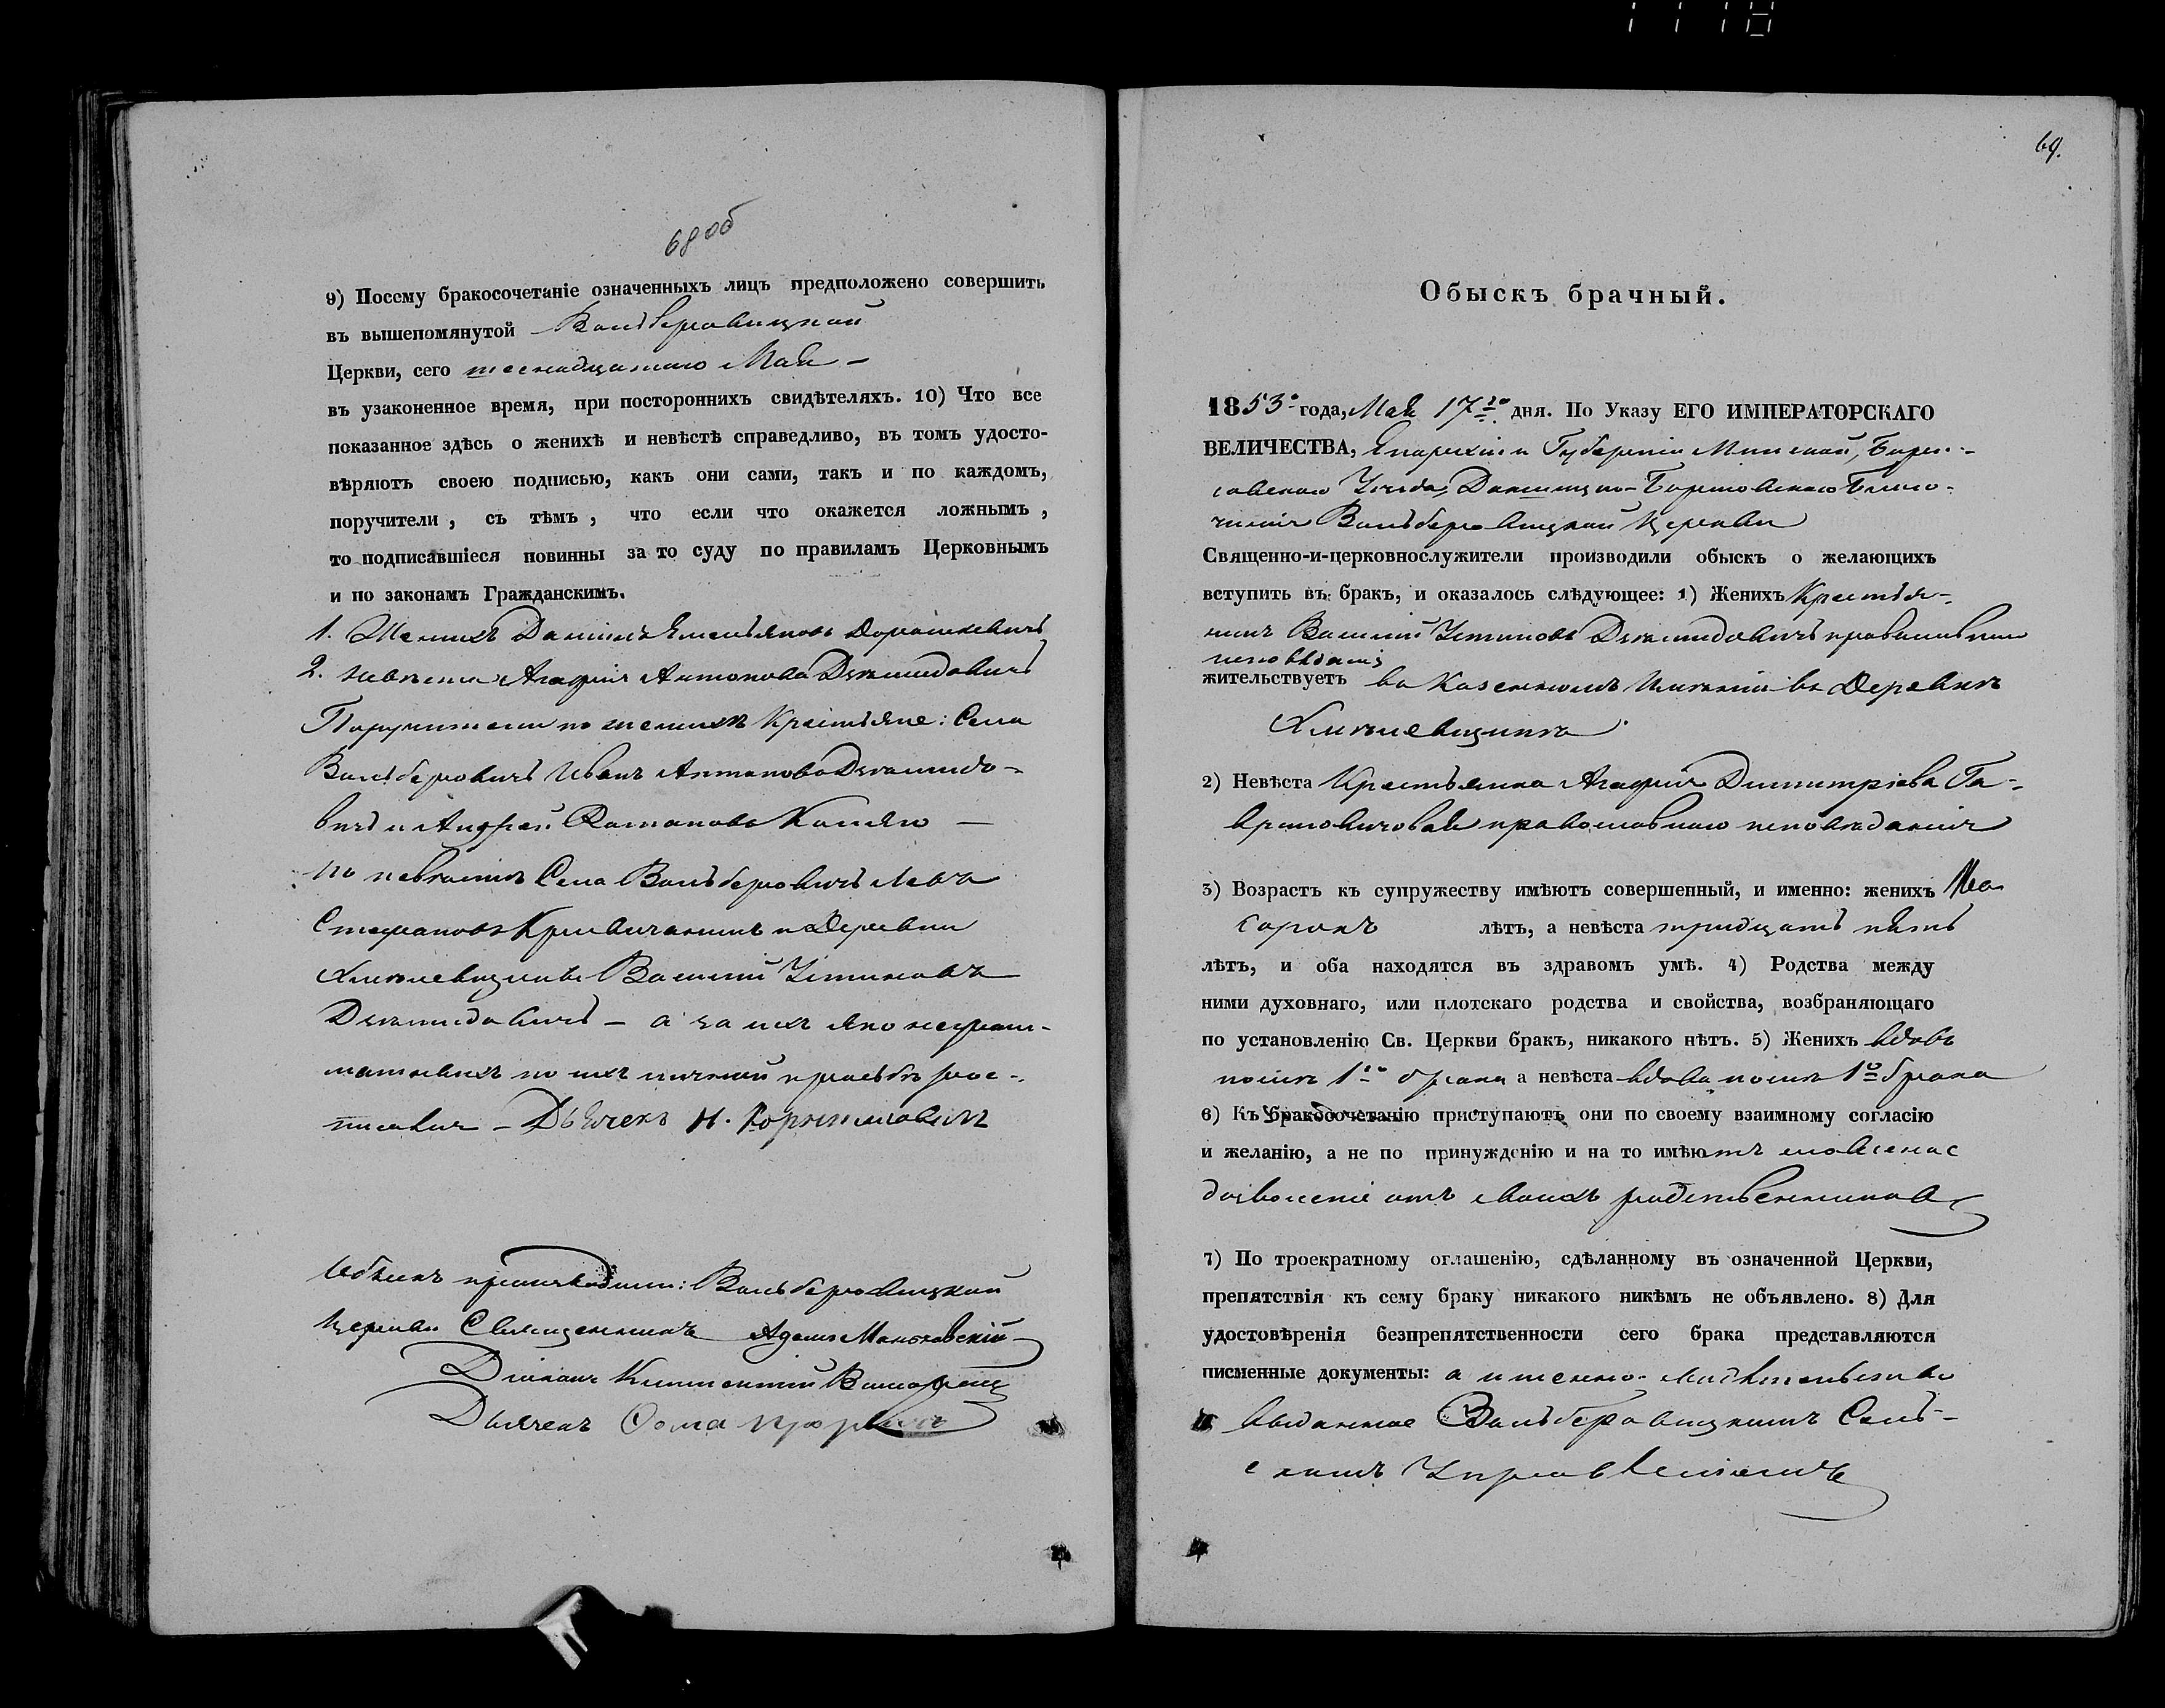 1118
68 об
9) Посему бракосочетаніе означенныхъ лицъ предположено совершить
въ вышепомянутой Вольберовицкой
Церкви, сего Мая –
въ узаконенное время, при постороннихъ свидѣтеляхъ. 10) Что все
показанное здѣсь о женихѣ и невѣстѣ справедливо, въ томъ удосто-
вѣряютъ своею подписью, какъ они сами, такъ и по каждомъ,
поручители, съ тѣмъ, что если что окажется ложнымъ,
то подписавшіеся повинны за то суду по правиламъ Церковнымъ
и по законамъ Гражданскимъ.
1. Женихъ Даніилъ Емельяновъ Дорошкевичъ
2. невѣста Агафія Антонова Демидовичъ
Поручители по женихѣ Крестьяне: Села
Вольберовичъ Иванъ Антоновъ Демидо-
вичъ и Андрей Романовъ –
по невѣстѣ Села Вольберовичъ Левъ
Стефановъ Кривичанинъ и Деревни
Василій Устиновъ
Демидовичъ – а за ихъ яко неграм-
матныхъ по ихъ личной просьбѣ рос-
писался – Дьячекъ Н.
Обыскъ производили: Вольберовицкой
Церкви Священникъ Адамъ Маньковскій
Діаконъ
Дьячекъ Ѳома
69.
Обыскъ брачный.
1853º года, Мая 17го дня. По Указу ЕГО ИМПЕРАТОРСКАГО
ВЕЛИЧЕСТВА, Епархіи и Губерніи Минской, Бори-
совскаго Уѣзда, Благо-
чинія Вольберовицкой Церкви
Священно-и-церковнослужители производили обыскъ о желающихъ
вступить въ бракъ, и оказалось слѣдующее: 1) Женихъ Крестья-
нинъ Василій Устиновъ Демидовичъ православнаго
исповѣданія
жительствуетъ въ Казенномъ Имѣніи въ Деревнѣ
2) Невѣста Крестьянка Агафія Димитріева Га-
вриловичова православнаго исповѣданія
3) Возрастъ къ супружеству имѣютъ совершенный, и именно: женихъ
сорокъ лѣтъ, а невѣста тридцать пять
лѣтъ, и оба находятся въ здравомъ умѣ. 4) Родства между
ними духовнаго, или плотскаго родства и свойства, возбраняющаго
по установленію Св. Церкви бракъ, никакого нѣтъ. 5) Женихъ вдовъ
послѣ 1го брака а невѣста вдова послѣ 1го брака
6) Къ бракосочетанію приступаютъ они по своему взаимному согласію
и желанію, а не по принужденію и на то имѣютъ словесное
дозволеніе отъ своихъ родственниковъ
7) По троекратному оглашенію, сдѣланному въ означенной Церкви,
препятствія къ сему браку никакого никѣмъ не объявлено. 8) Для
удостовѣренія безпрепятственности сего брака представляются
писменные документы: а именно: свидѣтельство
выданное Вольберовицкимъ Сель-
скимъ Управленіемъ